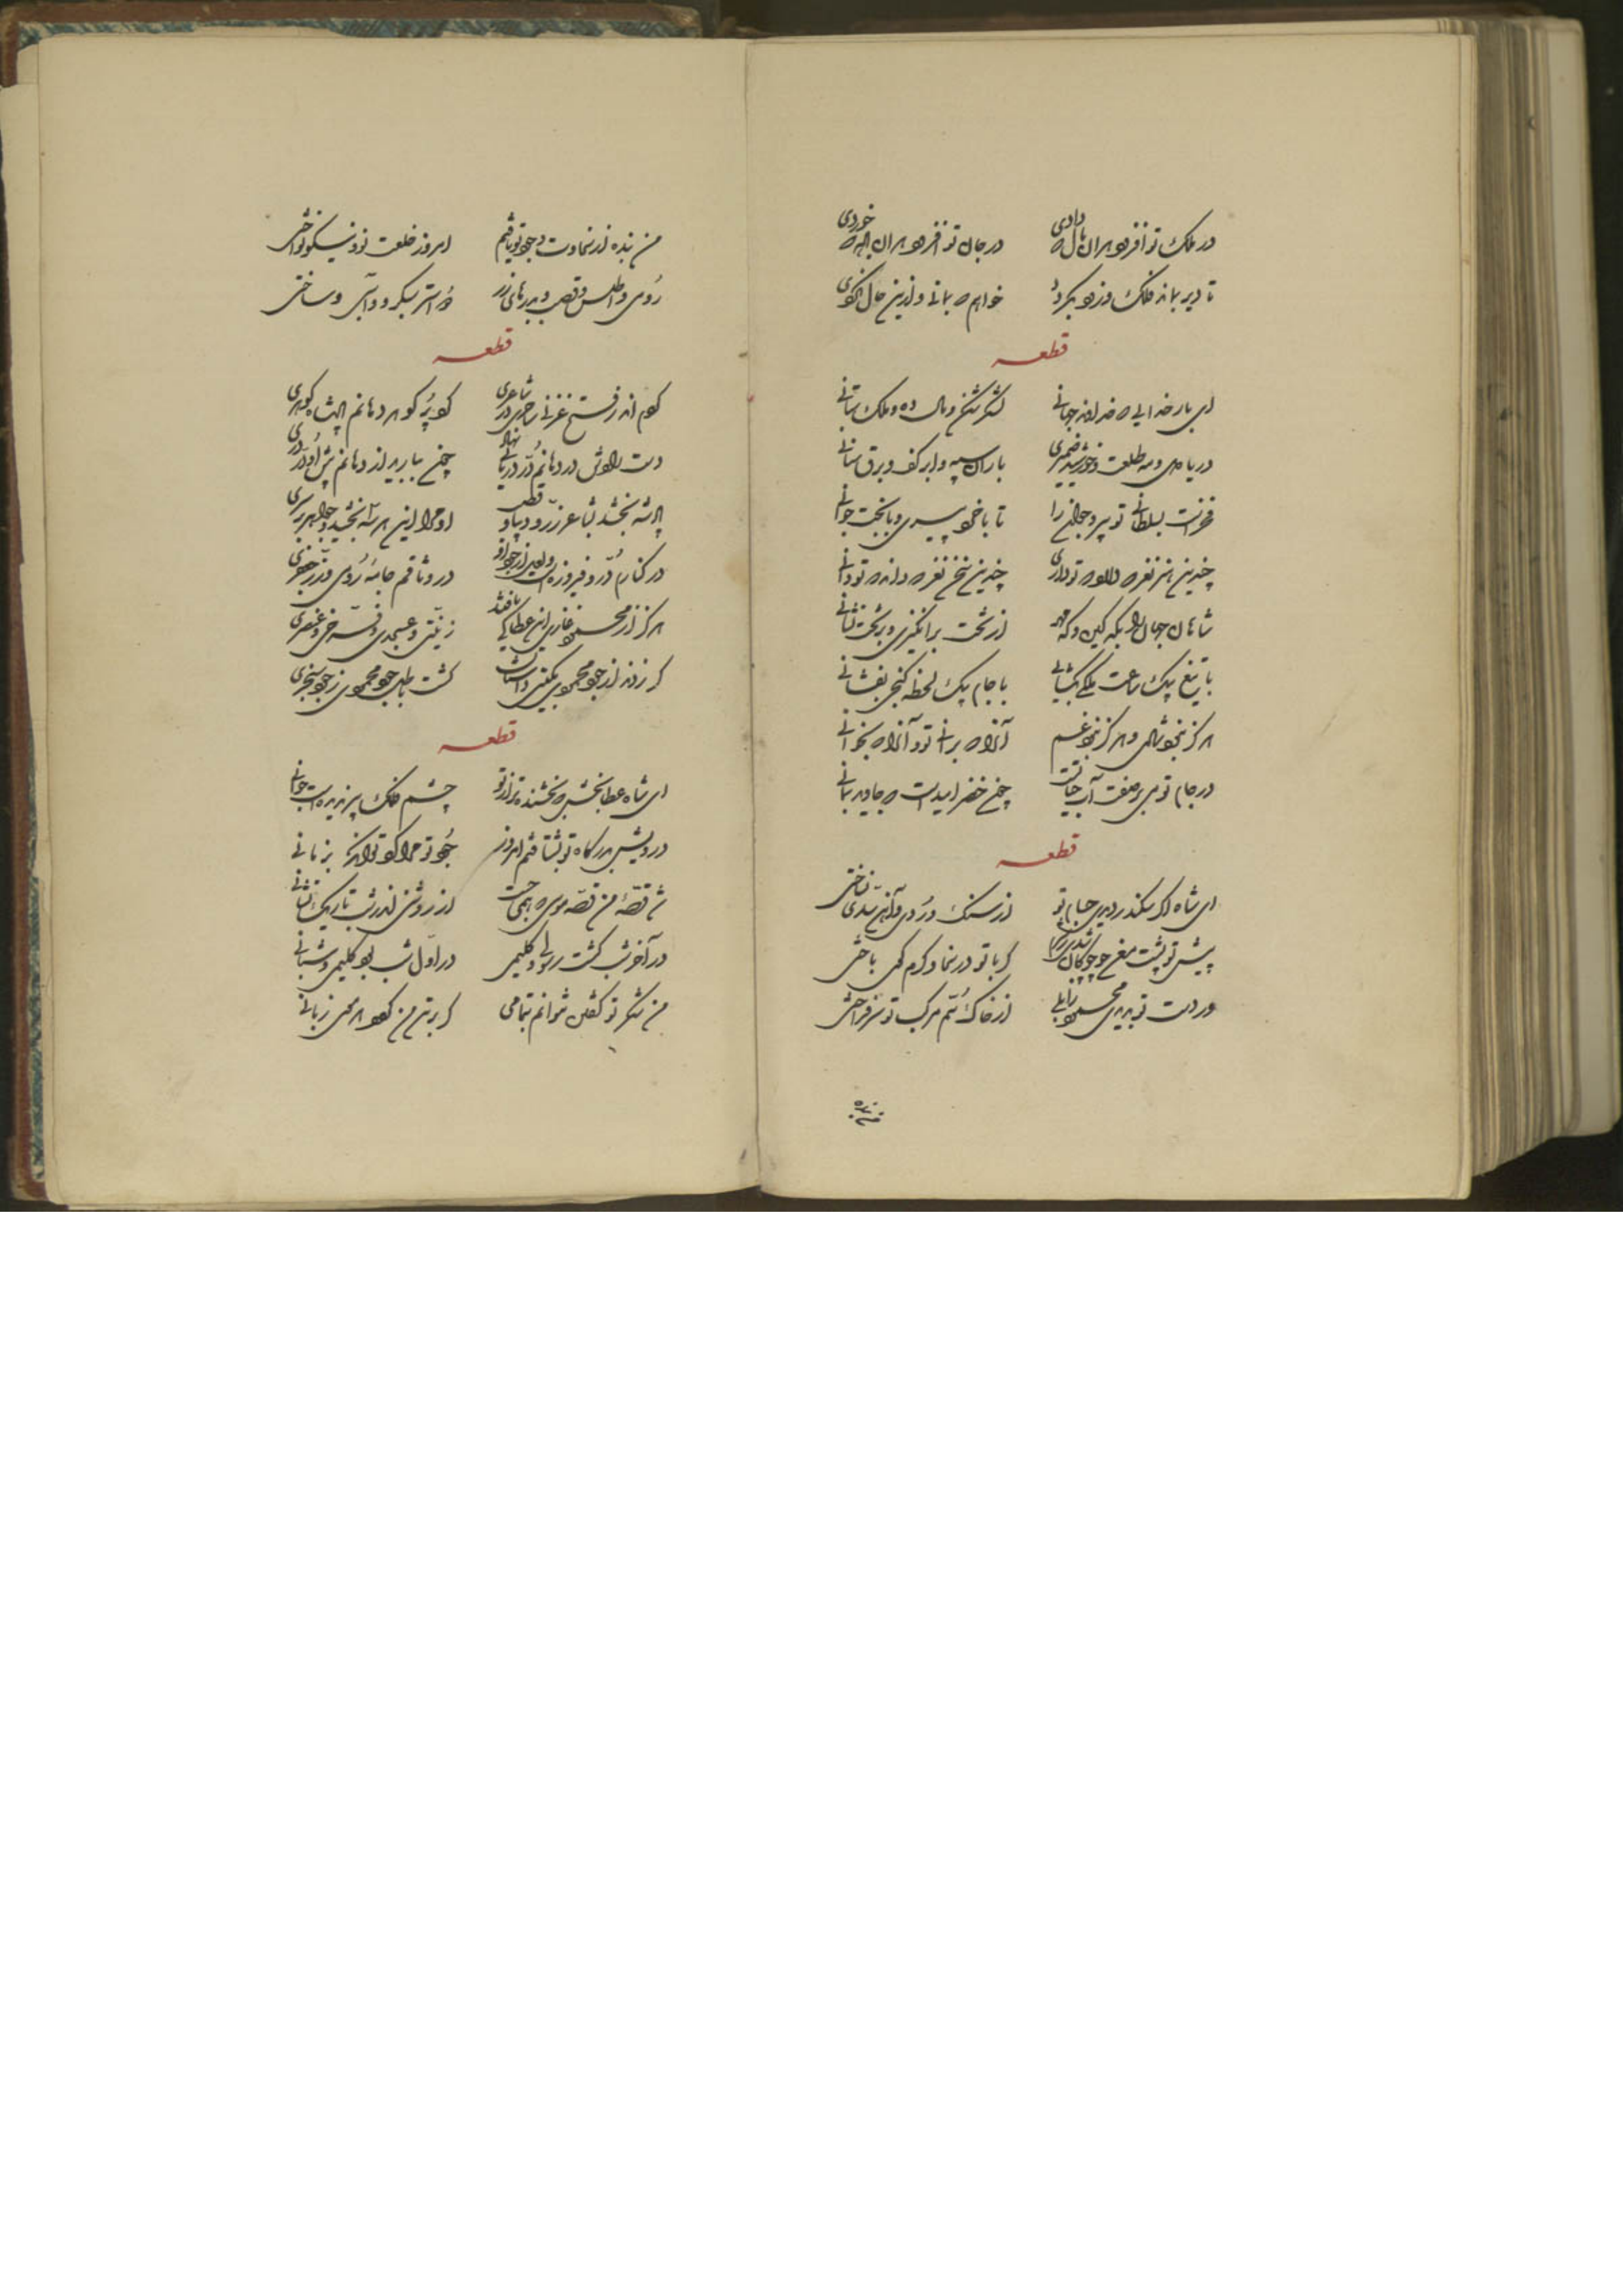 در ملک تو افزود هر آن مال که دادی در جان تو افزود هر آن باده که خوردی
تا دیر بماند فلک و زود بگردد خواهم که بمانی و ازین حال نگردی
قطعه
ای بار خدایی که خداوند جهانی لشکر شکن و مال ده و ملک ستانی
دریا دل و مه طلعت و خورشید ضمیری باران سپه و ابر کف و برق سنانی
فخرست بسلطانی تو پیر و جوان را تا با خرد پیری و با بخت جوانی
چندین هنر نغز که داری تو که داری چندین سخن نغز که داند که تو دانی
شاهان جهان را بگه کین و گه مهر از تخت برانگیزی و بر تخت نشانی
با تیغ بیک ساعت ملکی بگشایی با جام بیک لحظه گنجی بفشانی
هرگز نخوشی و هرگز نخورد غم آنرا که برانی تو و آنرا که بخوانی
در جام تو می بر صفت آب حیاتست چون خضر امیدست که جاوید بمانی
قطعه
ای شاه اگر سکندر دیدی حسام تو از سنگ و روی و آهن سدی نساختی
پیش تو پشت من چو چوگان شدی گر با تو در سخا و کرم گوی باختی
ور دست تو بدیدی محمود زابلی از خاک سم مرکب تو سرفراختی
من بنده
من بنده از سخاوت و جود تو یافتم امروز خلعت تو و نیکو نواختی
رومی و اطلس و قصب و بدرهای زر استر و ساختی
قطعه
گوهر دهانم پادشاه گوهری
دست رادش در دهانم در دریایی نهاد چون ببارید از دهانم پیش او در دری
پادشه بخشد بشاعر زر و دیبا و قصب او مرا این هرسه بخشید و جواهر بر سری
در کنارم در و فیروزه است و لعل از جود او در وثاقم جامه رومی و زر جعفری
هرگز از محمود غازی این عطا کی یافتند زینتی و عسجدی و فرخی و عنصری
گر زدند از جود محمودی بگیتی داستان گشت باطل جود محمودی ز جود سنجری
قطعه
ای شاه عطابخش که بخشنده‌تر از تو چشم فلک پیر ندیدست جوانی
درویش بدرگاه تو بشتافتم امروز جود تو مرا کرد توانگر بزمانی
شد قصه من قصه موسی که همی جست از روشنی اندر شب تاریک نشانی
در آخر شب گشت رسولی و کلیمی در اول شب بود کلیمی و شبانی
من شکر تو گفتن نتوانم بتمامی گر بر تن من گردد هر موی زبانی